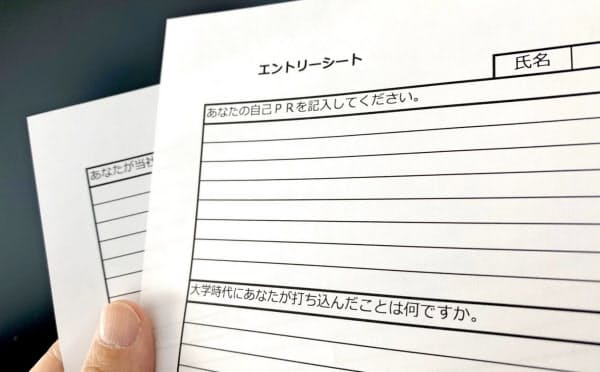 エントリーシート
氏名
あなたの自己ＰＲを記入してください。
あなたが当社
大学時代にあなたが打ち込んだことは何ですか。